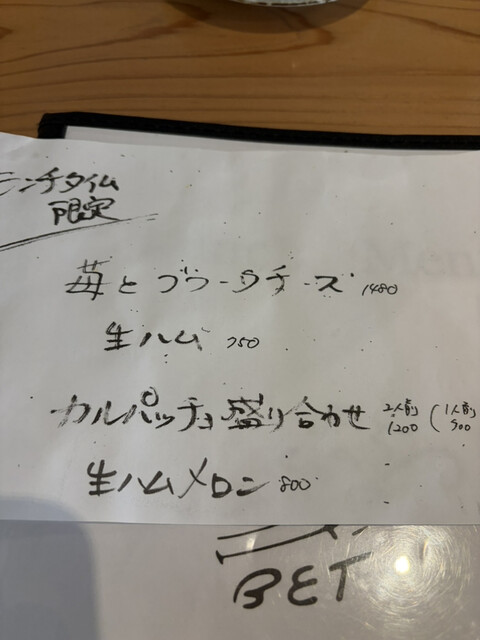 ランチタイム
限定
苺とブラータチーズ 1480
生ハム 750
カルパッチョ盛り合わせ 2人前 1200 (1人前 900
生ハムメロン 800
BET